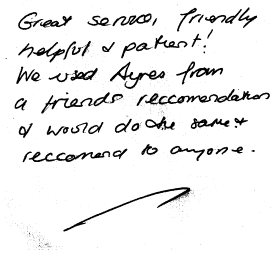 Great service, friendly
helpful & patient!
We used Ayres from
a friends reccomendation
& would do the same &
reccomend to anyone.